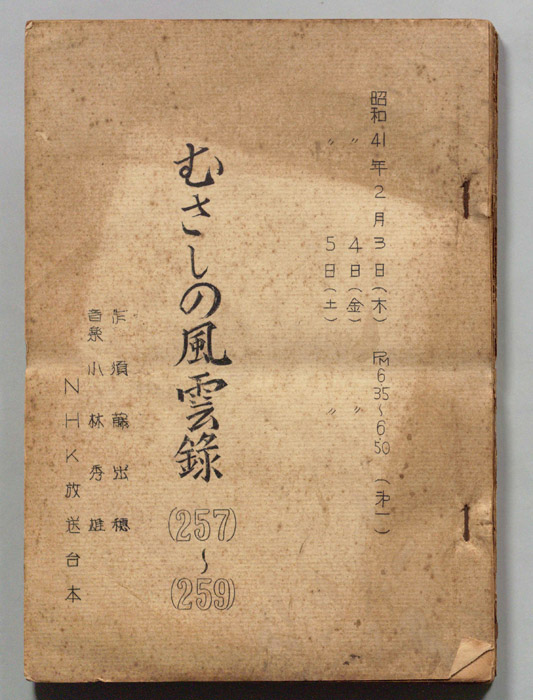 昭和41年2月3日(木) PM6.35〜6.50 (才一)
〃 4日(金) 〃
〃 5日(土) 〃
むさしの風雲錄
(257)〜(259)
作 須藤出穂
音楽 小林秀雄
NHK放送台本